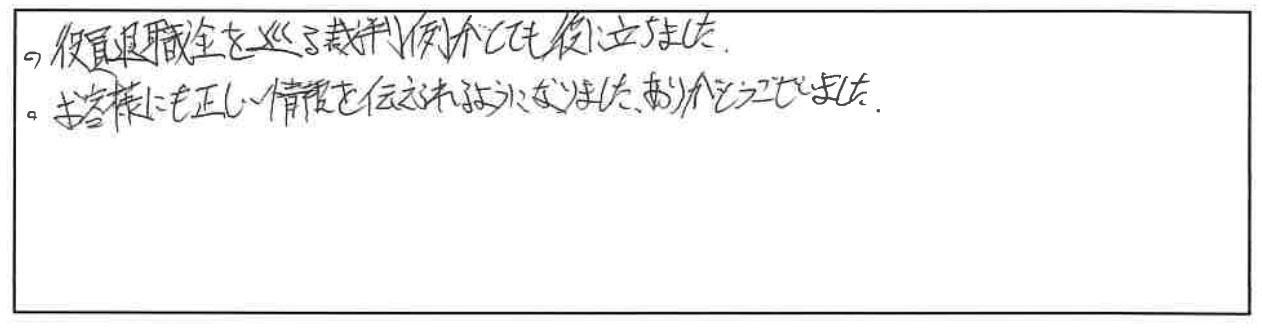 。役員退職金を巡る裁判例がとても役に立ちました.
。お客様にも正しい情報を伝えられるようになりました、ありがとうございました.